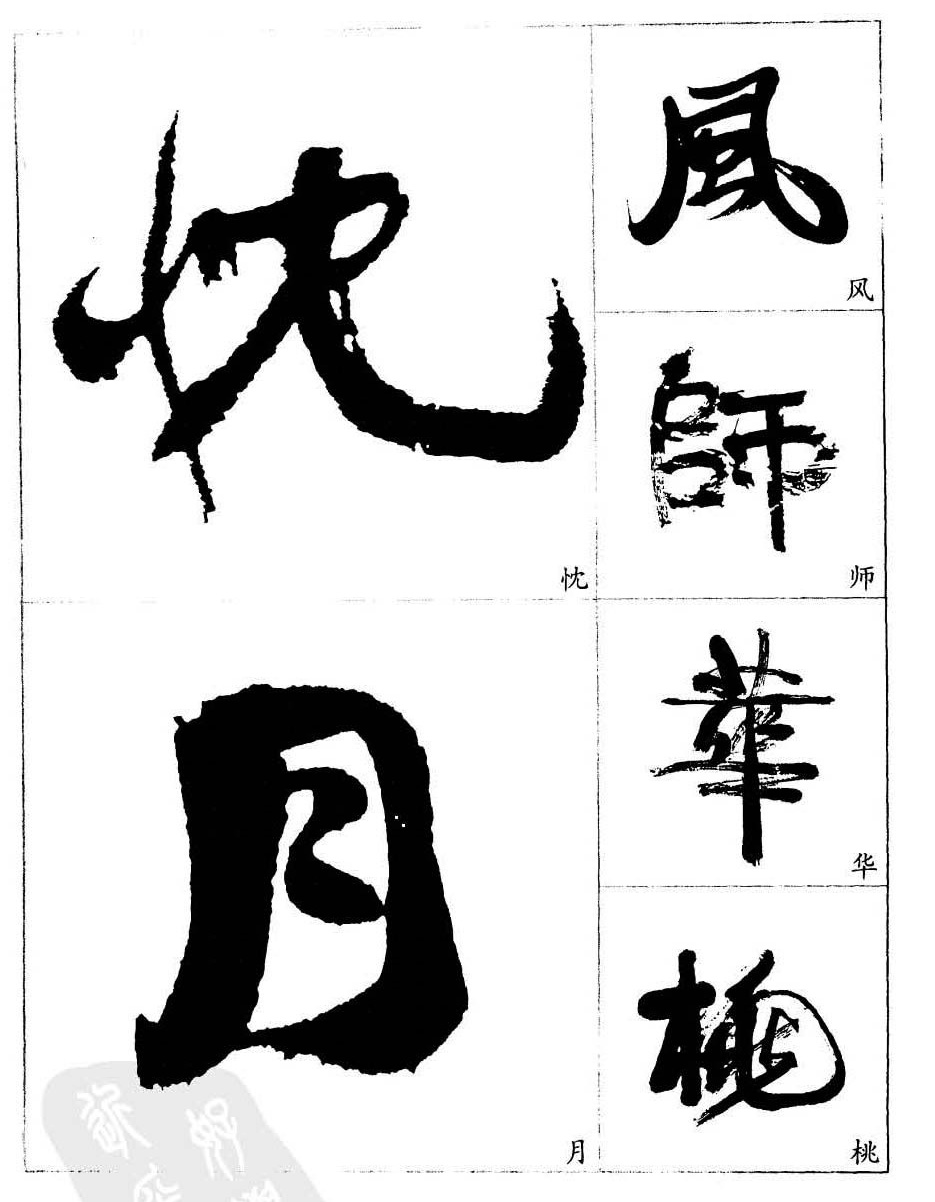 忱
忱
月
月
風
风
師
师
華
华
桃
桃